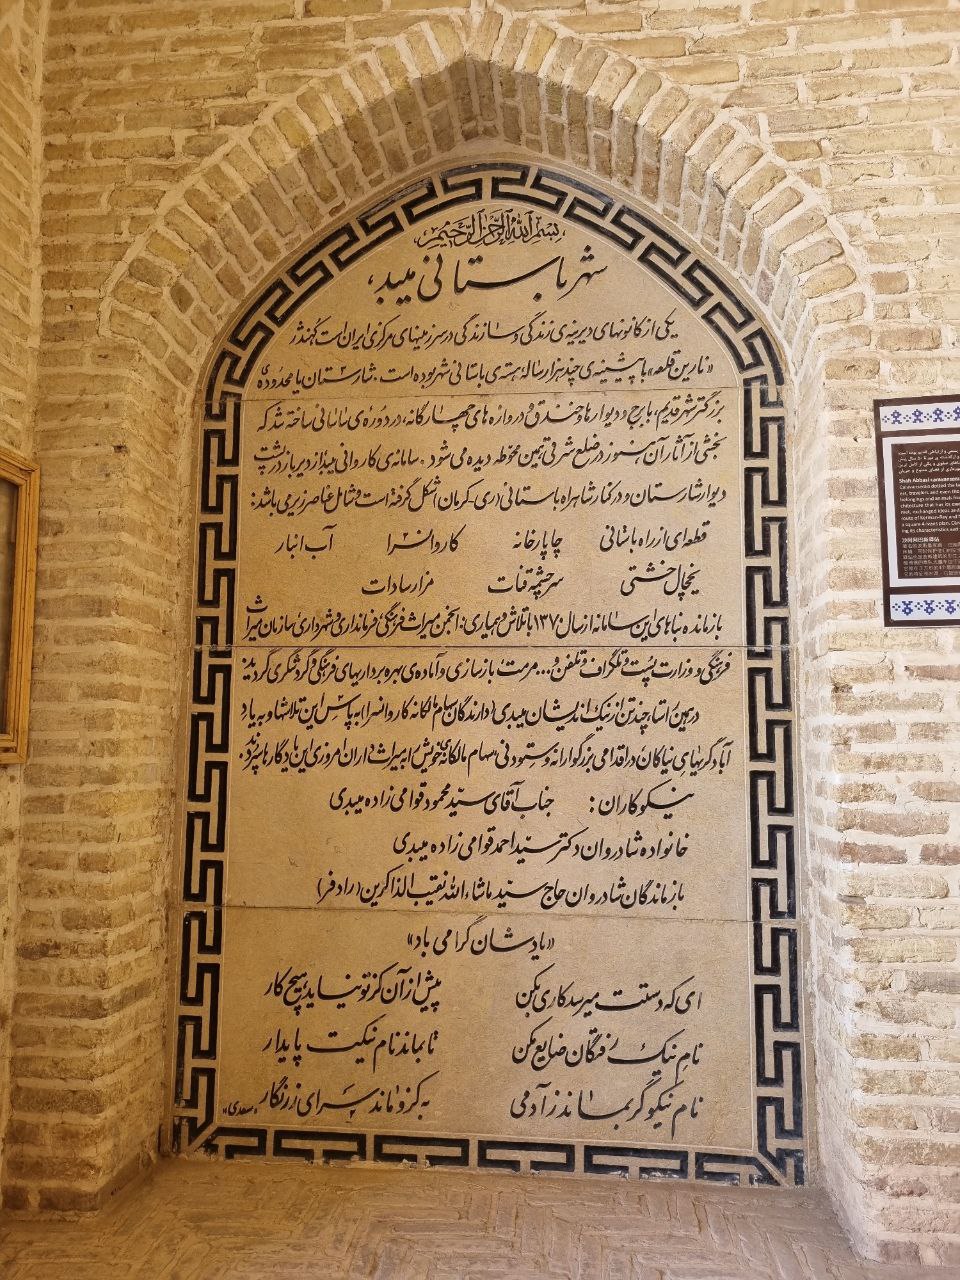 بسم الله الرحمن الرحیم
شهر باستانی میبد،
یکی از کانونهای دیرینه‌ی زندگی و سازندگی در سرزمینهای مرکزی ایران است کهندژ
«نارین قلعه» با پیشینه‌ی چند هزار ساله هسته‌ی باستانی شهر بوده است. شارستان یا محدوده‌ی
بزرگتر شهر قدیم، با برج و دیوارها و خندق و دروازه‌های چهارگانه، در دوره‌ی ساسانی ساخته شد که
بخشی از آثار آن هنوز در ضلع شرقی همین محوطه دیده می‌شود. سامانه‌ی کاروانی میبد از دیرباز در پشت
دیوار شارستان و در کنار شاهراه باستانی (ری - کرمان) شکل گرفته است و شامل عناصر زیر می باشد:
قطعه‌ای از راه باستانی چاپارخانه کاروانسرا آب انبار
یخچال خشتی سرچشمه قنات مزار سادات
بازمانده بناهای این سامانه از سال ۱۳۷۰ با تلاش و همیاری: انجمن میراث فرهنگی، فرمانداری و شهرداری، سازمان میراث
فرهنگی و وزارت پست و تلگراف و تلفن و... مرمت، بازسازی و آماده‌ی بهره برداریهای فرهنگی و گردشگری گردید.
در همین راستا، چند تن از نیک اندیشان میبدی (دارندگان سهام مالکانه کاروانسرا) به پاس این تلاشها و به یاد
آبادگریهای نیاکان، در اقدامی بزرگوارانه و ستودنی، سهام مالکانه‌ی خویش را به میراث داران امروزی این یادگارها سپردند.
نیکوکاران: جناب آقای سیّد محمود قوامی زاده میبدی
خانواده شادروان دکتر سیّد احمد قوامی زاده میبدی
بازماندگان شادروان حاج سیّد ماشاءالله نقیب الذاکرین (رادفر)
«یادشان گرامی باد»
ای که دستت میرسد کاری بکن پیش از آن کز تو نیاید هیچ کار
نام نیک رفتگان ضایع مکن تا بماند نام نیکت پایدار
نام نیکو گر بماند ز آدمی به کزو ماند سرای زرنگار «سعدی»
Shah Abbasi caravanserai